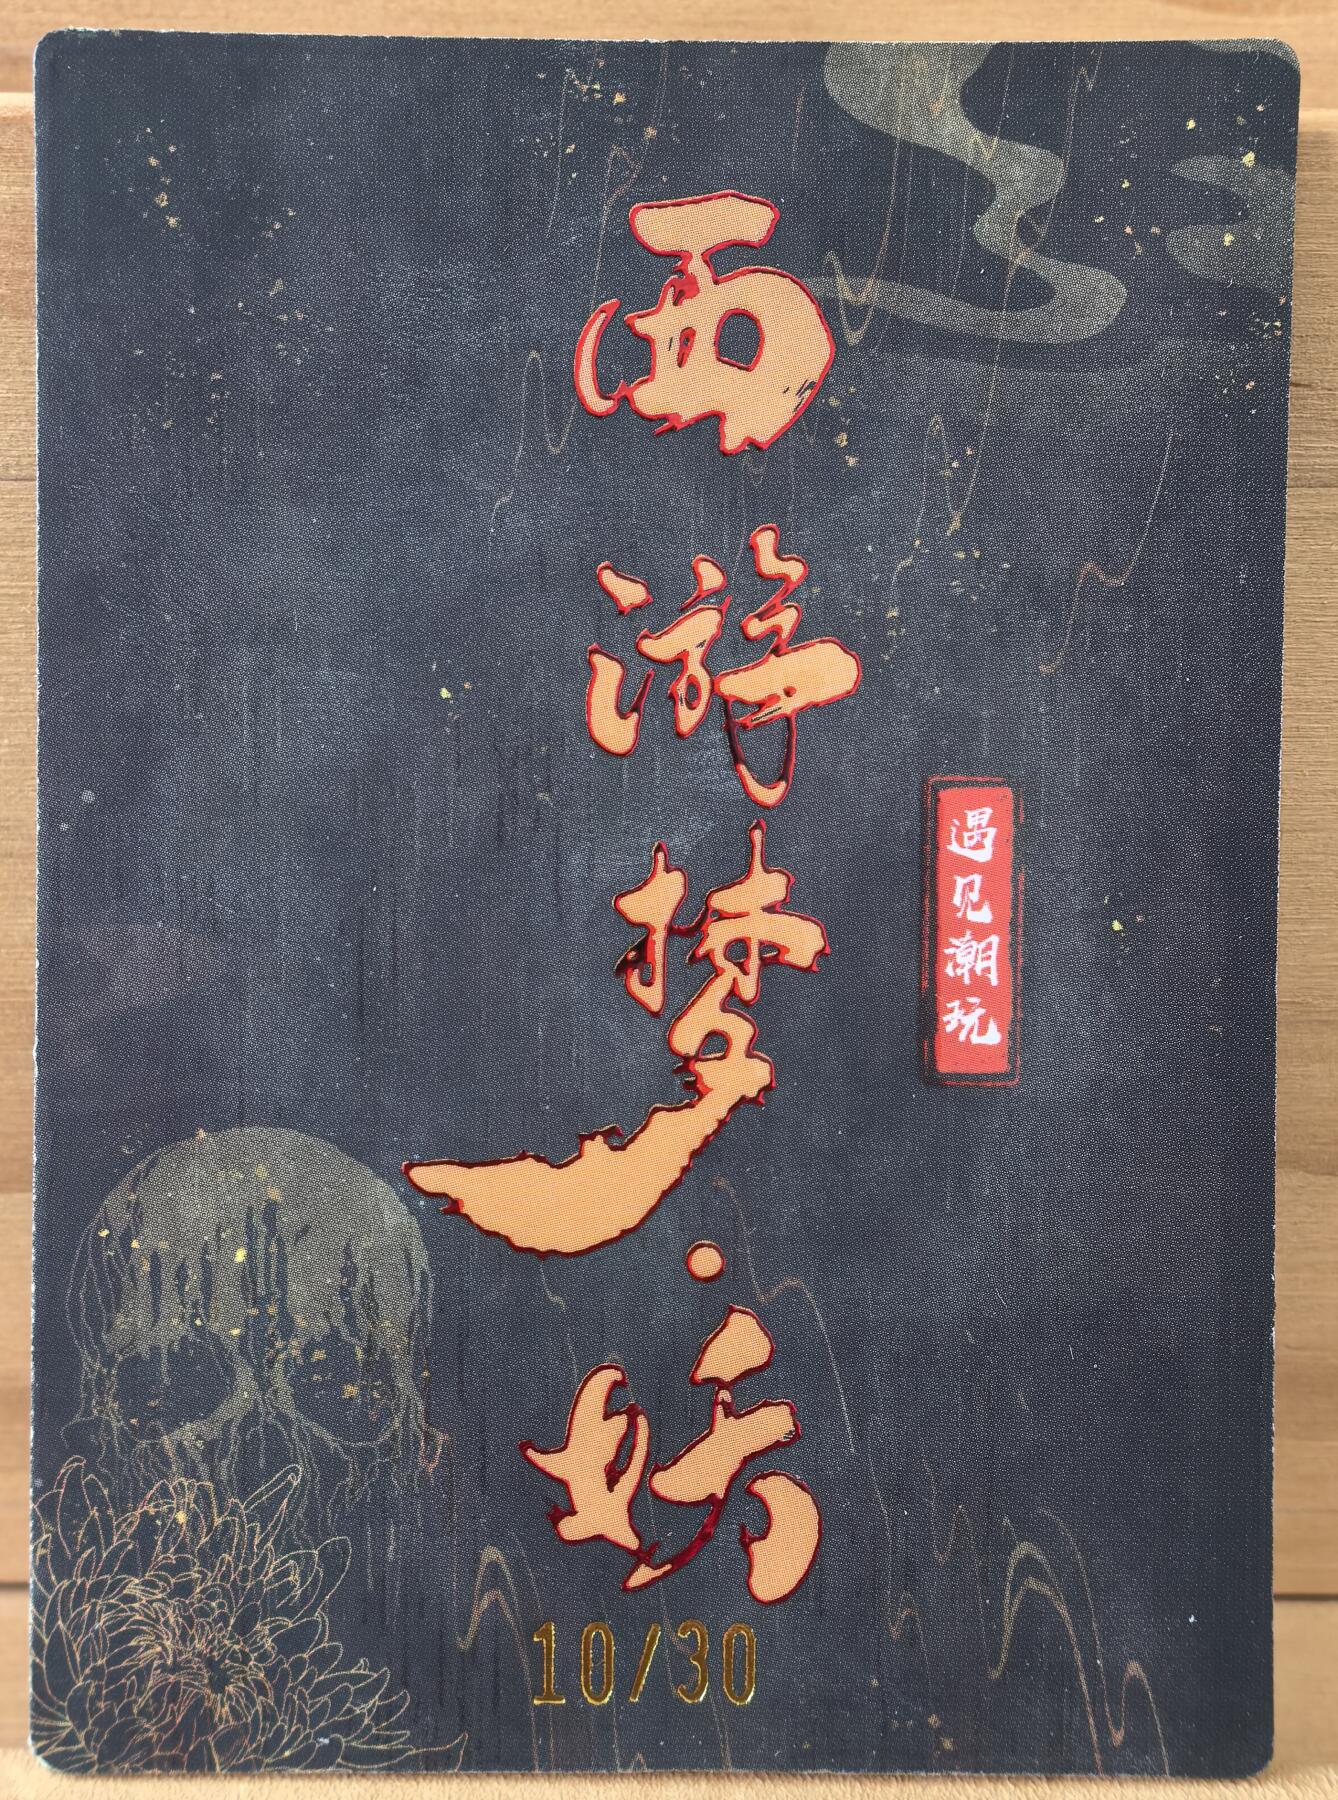 西游梦·妖
遇见潮玩
10/30